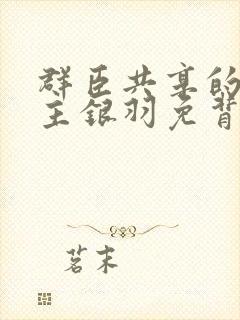 群臣共享的
主银羽免背
茗末